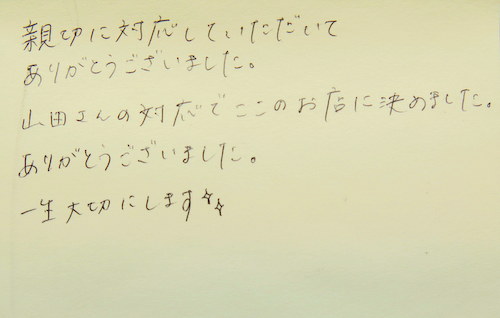 親切に対応していただいて
ありがとうございました。
山田さんの対応でここのお店に決めました。
ありがとうございました。
一生大切にします✨